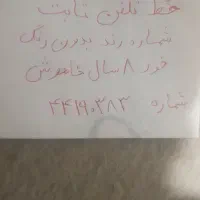 خط تلفن ثابت
شماره رند بدون زنگ
خور ۸ سال خاموش
شماره ۴۴۱۹۰۳۸۳